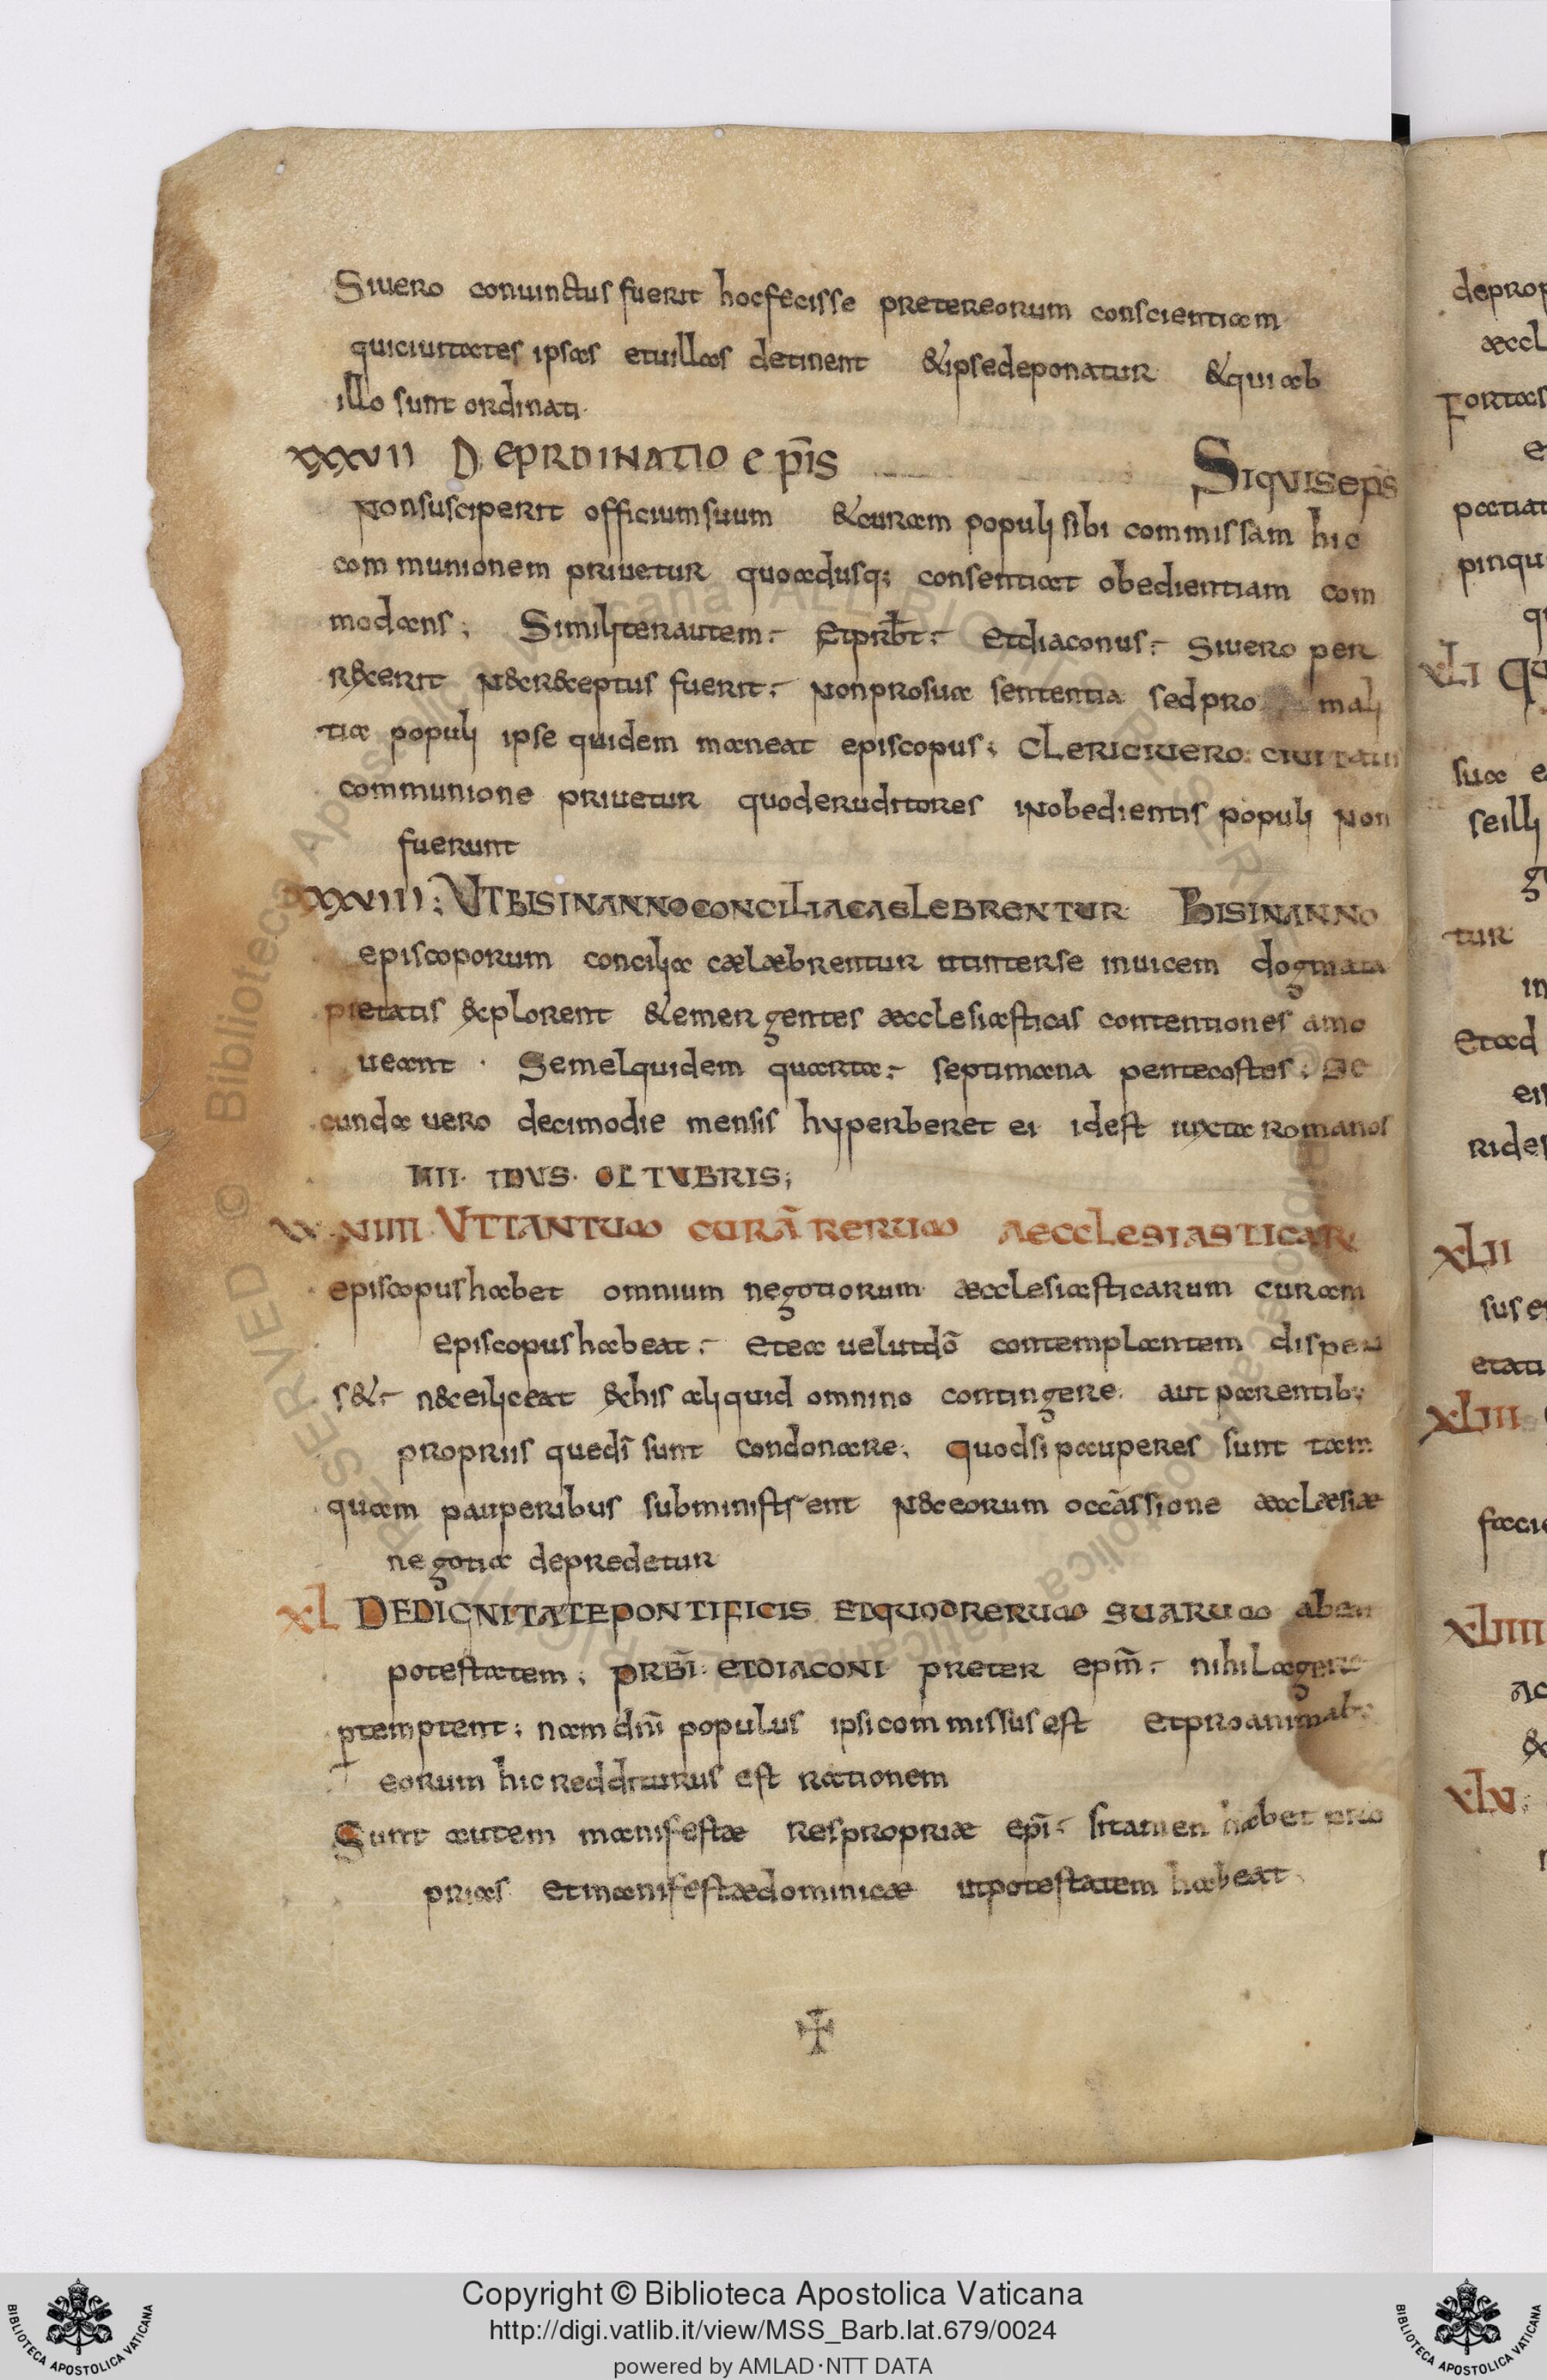 Siuero conuinctus fuerit hocfecisse pretereorum conscientiam
quiciuitates ipsas etuillas detinent &ipsedeponatur &quiab
illo sunt ordinati·
XXXVII DEPRDINATIO e p̄is SIQVISep̄s
Nonsusciperit officiumsuum &curam populi sibi commissam hic
communionem priuetur quoadusq; consentiat obedientiam com
modans; Similiterautem· Etprb̄t· etdiaconus· Siuero per
r&cerit N&cr&ceptus fuerit· Nonprosua sententia sedpro mali
tia populi ipse quidem maneat episcopus; CLERICIUERO: ciuitatis
communione priuetur quoderuditores inobedientis populi Non
fuerunt
XXXVIII; UTBISINANNOCONCILIACAELEBRENTUR BISINANNO
episcoporum concilia cælæbrentur utinterse inuicem dogmata
pietatis &xplorent &emergentes æcclesiasticas contentiones amo
ueant · Semelquidem quarta· septimana pentecostes; Se
cunda uero decimodie mensis hyperberet ei idest iuxta romanos
IIII· IDUS· OCTUBRIS;
XXXVIIII UTTANTUM CURĀ RERUM AECCLESIASTICAR
episcopushabet omnium negotiorum æcclesiasticarum curam
episcopushabeat· etea uelutdō contemplantem dispen
s&· n&ceiliceat &xhis aliquid omnino contingere· aut parentib;
propriis quedī sunt condonare; quodsi pauperes sunt tam
quam pauperibus subministrent N&ceorum occāssione æcclæsiæ
negotia depredetur
XL DEDIGNITATEPONTIFICIS ETQUODRERUM SUARUM aben
potestatem; PRB̄I· ETDIACONI preter ep̄m· nihilagere
ptemptent; namdn̄i populus ipsicommissusest etproanimab;
eorum hicredditurus est rationem
Sunt autem manifestæ respropriæ ep̄i· sitamen habet pro
prias etmanifestædominicæ utpotestatem habeat
deprop
æccl
Fortas
e
patiat
pinqu
qu
XLI Qu
sua e
seilli
tur
in
Etad
ei
rides
XLII
suse
etati
XLIII
facie
XLIIII
ac
&
XLV;
Copyright © Biblioteca Apostolica Vaticana
http://digi.vatlib.it/view/MSS_Barb.lat.679/0024
powered by AMLAD·NTT DATA
BIBLIOTECA APOSTOLICA VATICANA
BIBLIOTECA APOSTOLICA VATICANA